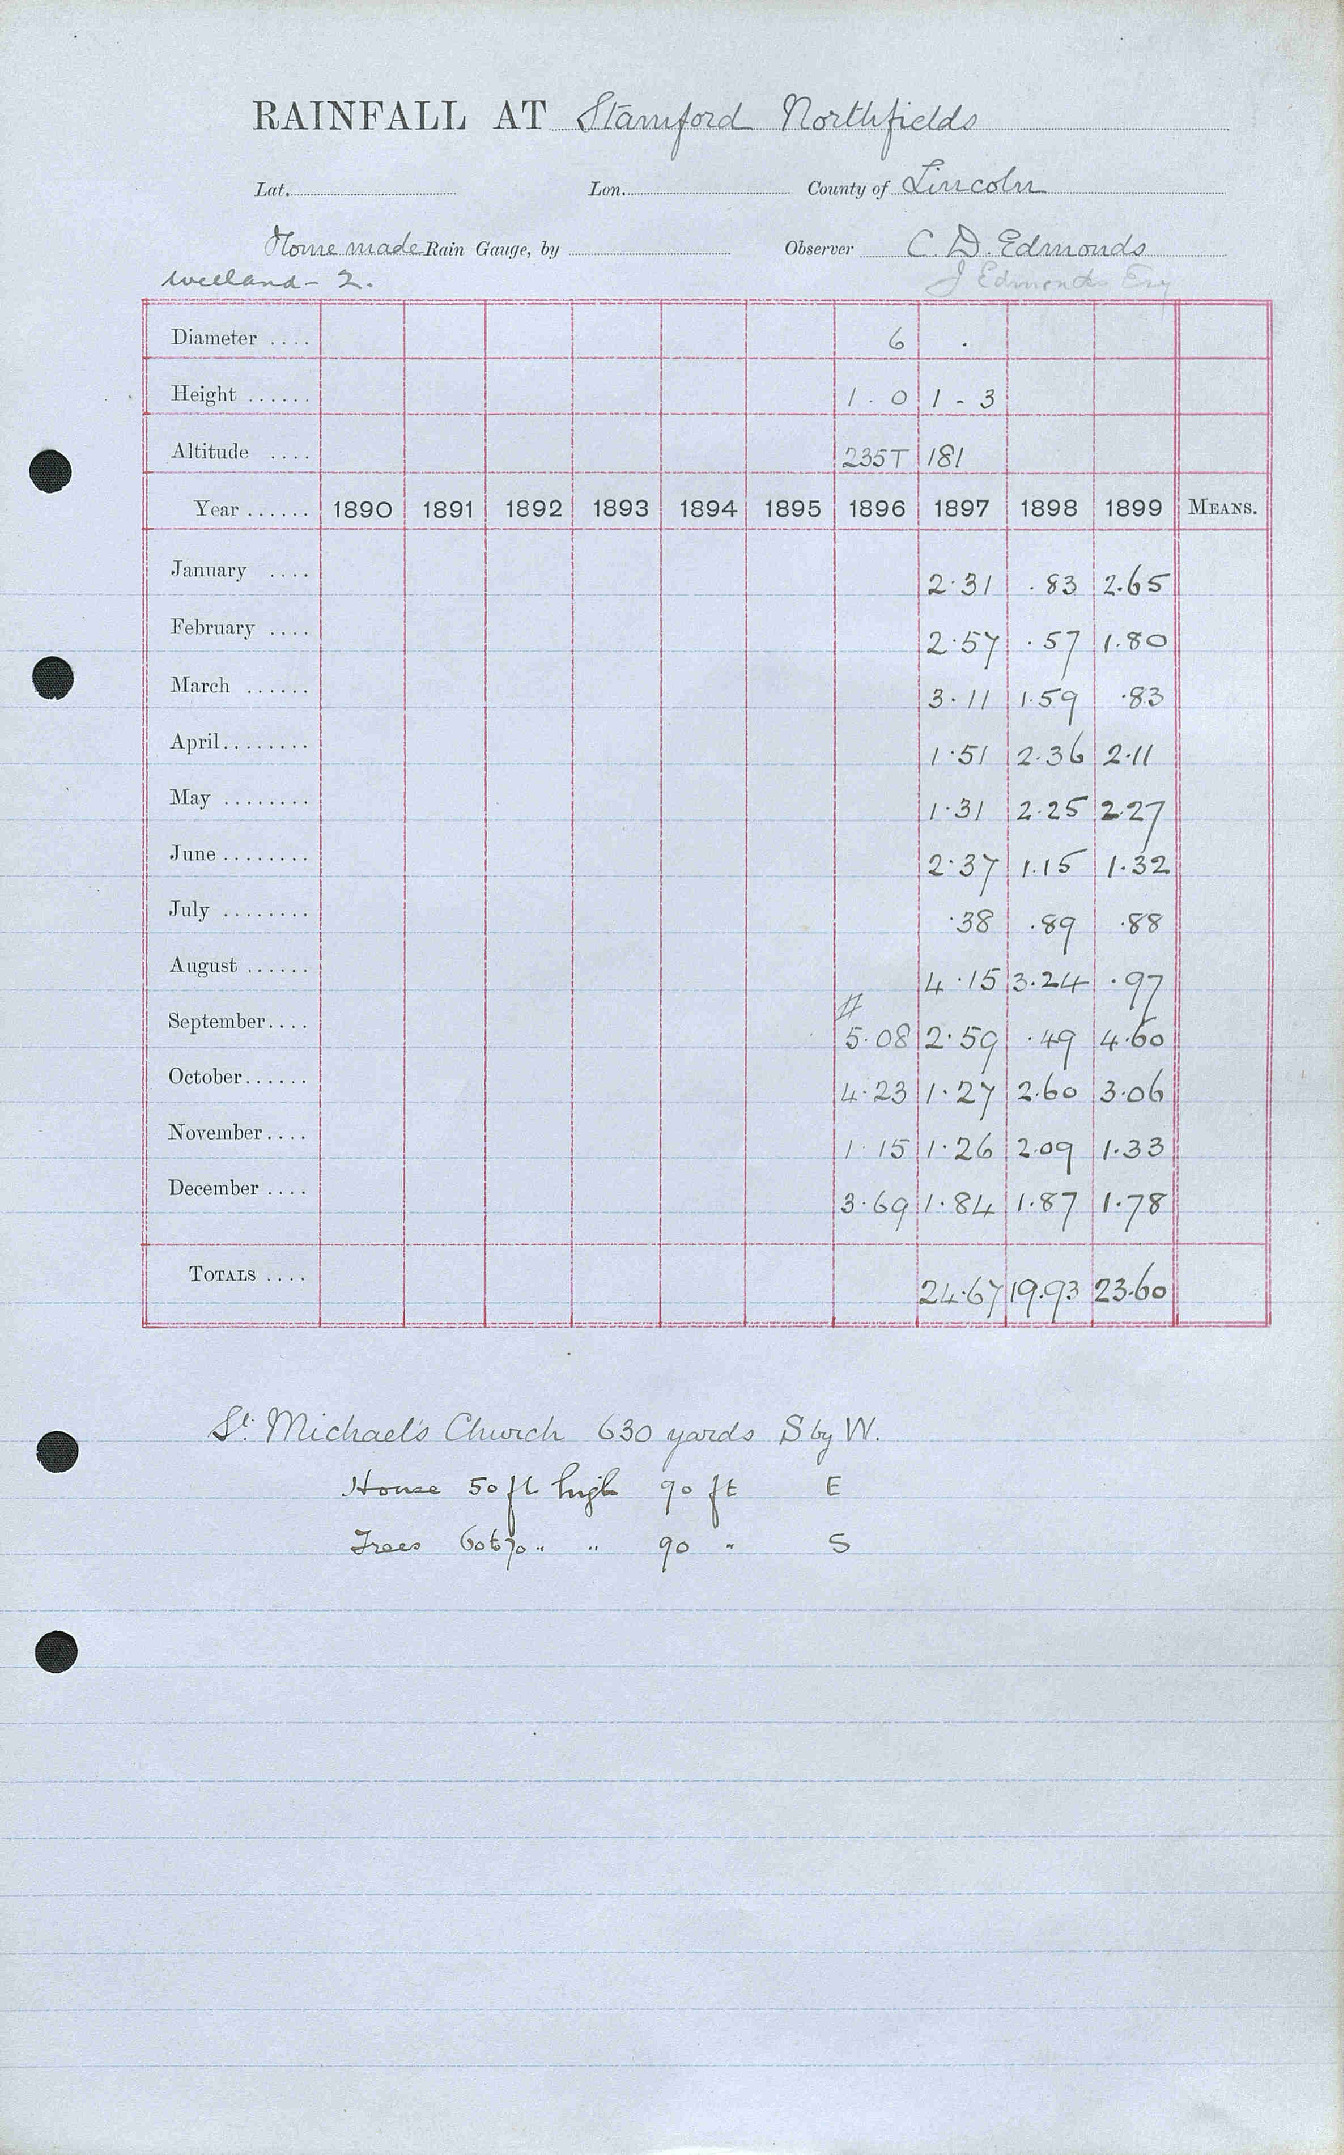 RAINFALL AT Stamford Northfields
Lat. Lon. County of Lincoln
Home made Rain Gauge, by Observer C. D. Edmonds
Welland - 2. J Edmonds Esq
Diameter .... 6 .
Height ...... 1 - 0 1 - 3
Altitude .... 235T 181
Year ...... 1890 1891 1892 1893 1894 1895 1896 1897 1898 1899 MEANS.
January .... 2.31 .83 2.65
February .... 2.57 .57 1.80
March ...... 3.11 1.59 .83
April........ 1.51 2.36 2.11
May ........ 1.31 2.25 2.27
June ........ 2.37 1.15 1.32
July ........ .38 .89 .88
August ...... 4.15 3.24 .97
September.... # 5.08 2.59 .49 4.60
October...... 4.23 1.27 2.60 3.06
November.... 1.15 1.26 2.09 1.33
December .... 3.69 1.84 1.87 1.78
TOTALS .... 24.67 19.93 23.60
St. Michael's Church 630 yards S by W.
House 50 ft high 90 ft E
Trees 60 to 70 " " 90 " S